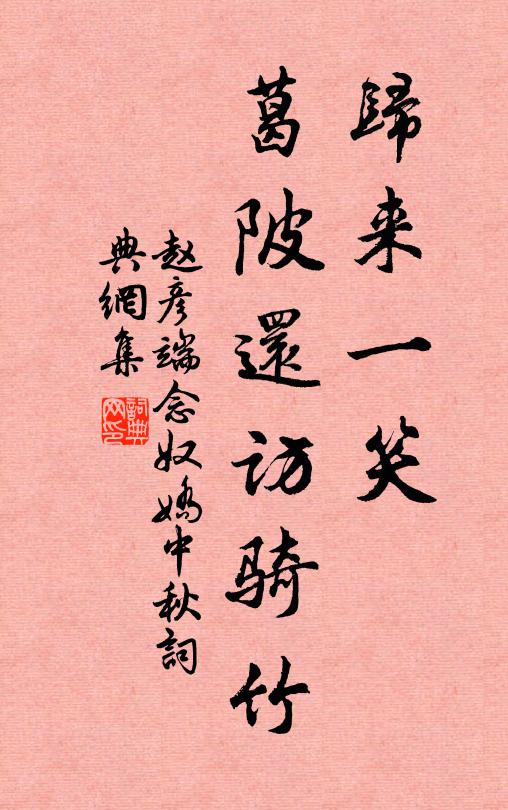 歸来一笑
葛陂還访骑竹
赵彦端念奴嬌中秋詞
典網集
詞典网印